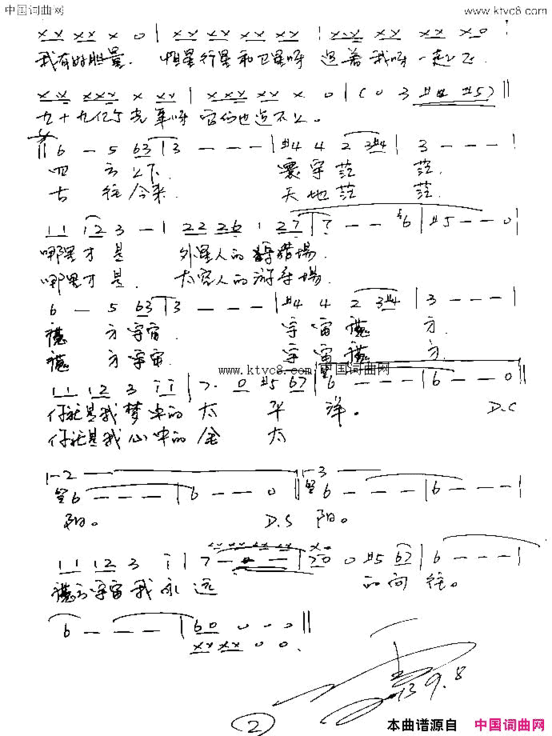 中国词曲网
www.ktvc8.com
x x x x x x 0 | x x x x x x x x | x x x x x x x 0 |
我有好胆量. 恒星行星和卫星呀 追着我呀一起飞
九十九亿个光年呀 它们也追不上.
6 - 5 63 | 3 - - - | #4 4 2 3#4 | 3 - - - |
四方上下 寰宇茫茫
古往今来 天地茫茫
11 12 3 - | 22 26 1 27 | 7 - - #6 | #5 - - 0 |
哪里才是 外星人的狩猎场.
哪里才是. 太空人的游乐场.
6 - 5 63 | 3 - - - | #4 4 2 3#4 | 3 - - - |
魔方宇宙 宇宙魔方
魔方宇宙. 宇宙魔方
www.ktvc8.com 中国词曲网
11 12 3 | 7. 0 #5 67 | 6 - - - | 6 - - 0 ||
你就是我梦中的太平洋。 D.C
你就是我心中的金太
1-2 3
6 - - - | 6 - - 0 || 6 - - - | 6 - - - |
阳。 D.S 阳。
11 12 3 i | 7 - - - | 70 0 #5 67 | 6 - - - |
魔方宇宙我永远 的向往。
6 - - - | 60 0 0 0 ||
xx xx 0 0
13.9.8
②
本曲谱源自 中国词曲网